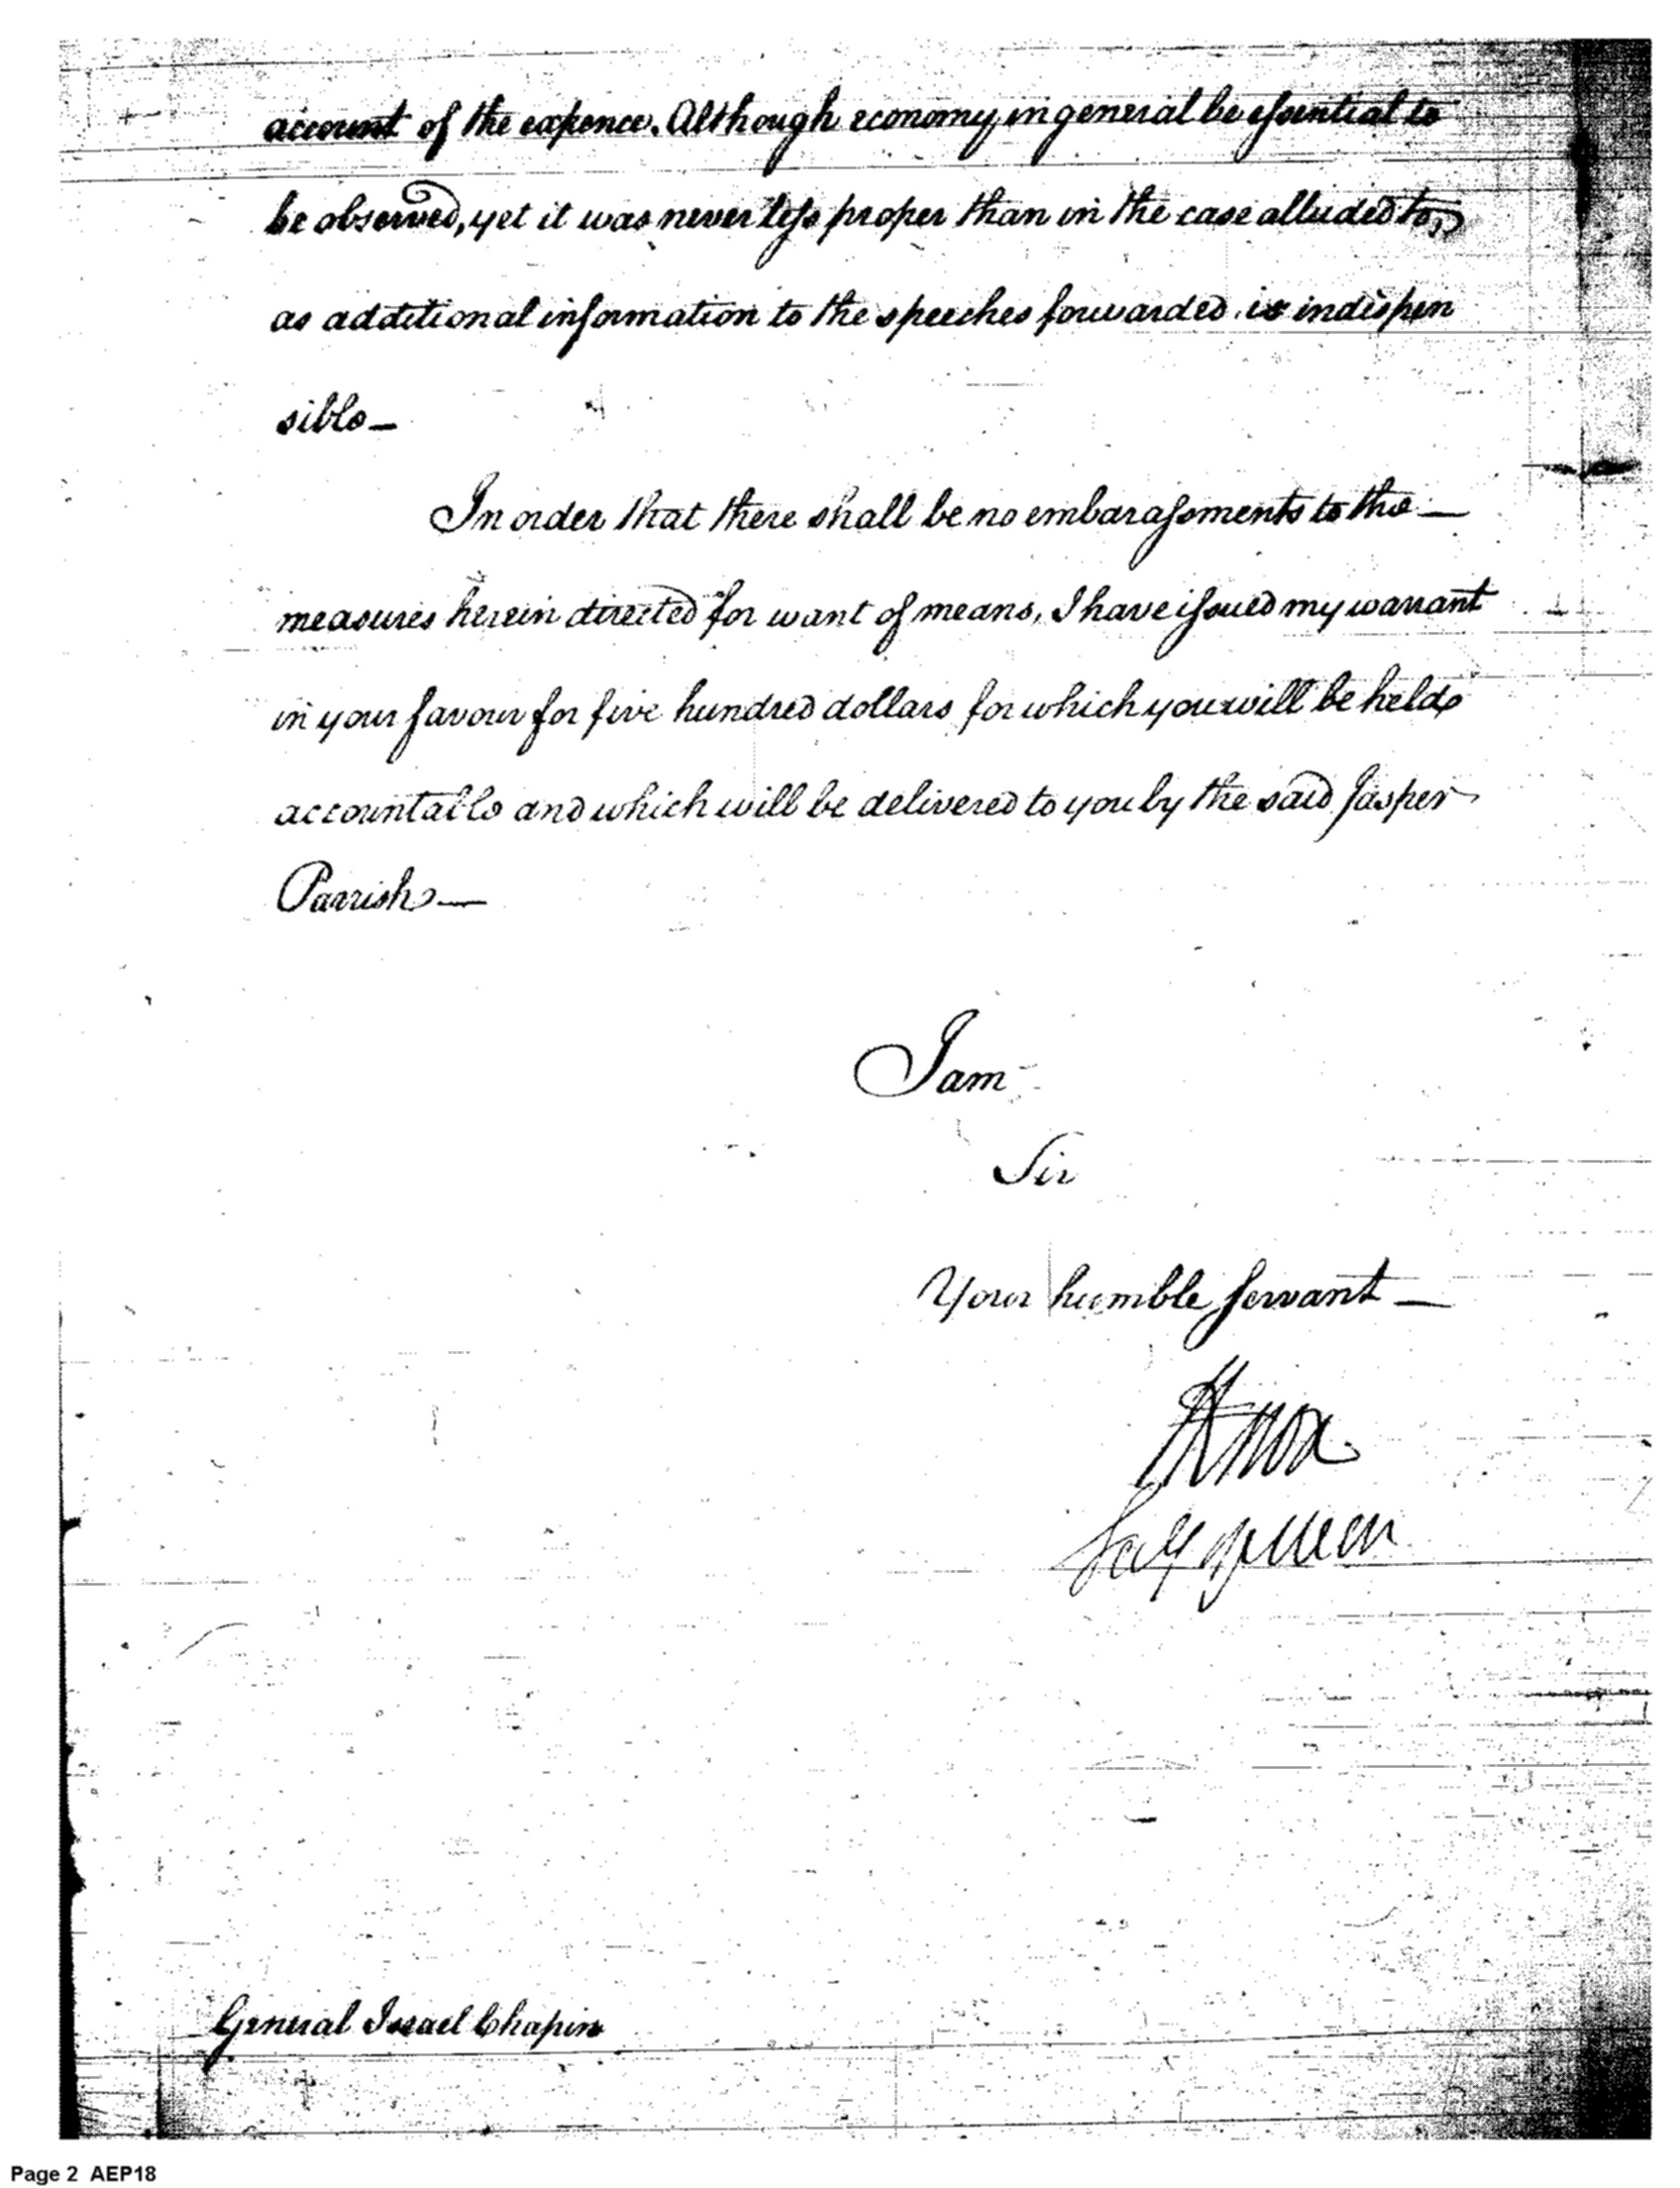 account of the expence. Although economy in general be essential to
be observed, yet it was never less proper than in the case alluded to,
as additional information to the speeches forwarded is indispen
sible—
In order that there shall be no embarassments to the—
measures herein directed for want of means, I have issued my warrant
in your favour for five hundred dollars for which you will be held
accountable and which will be delivered to you by the said Jasper
Parrish—
I am
Sir
Your humble servant—
HKnox
Secy of War
General Israel Chapin
Page 2 AEP18